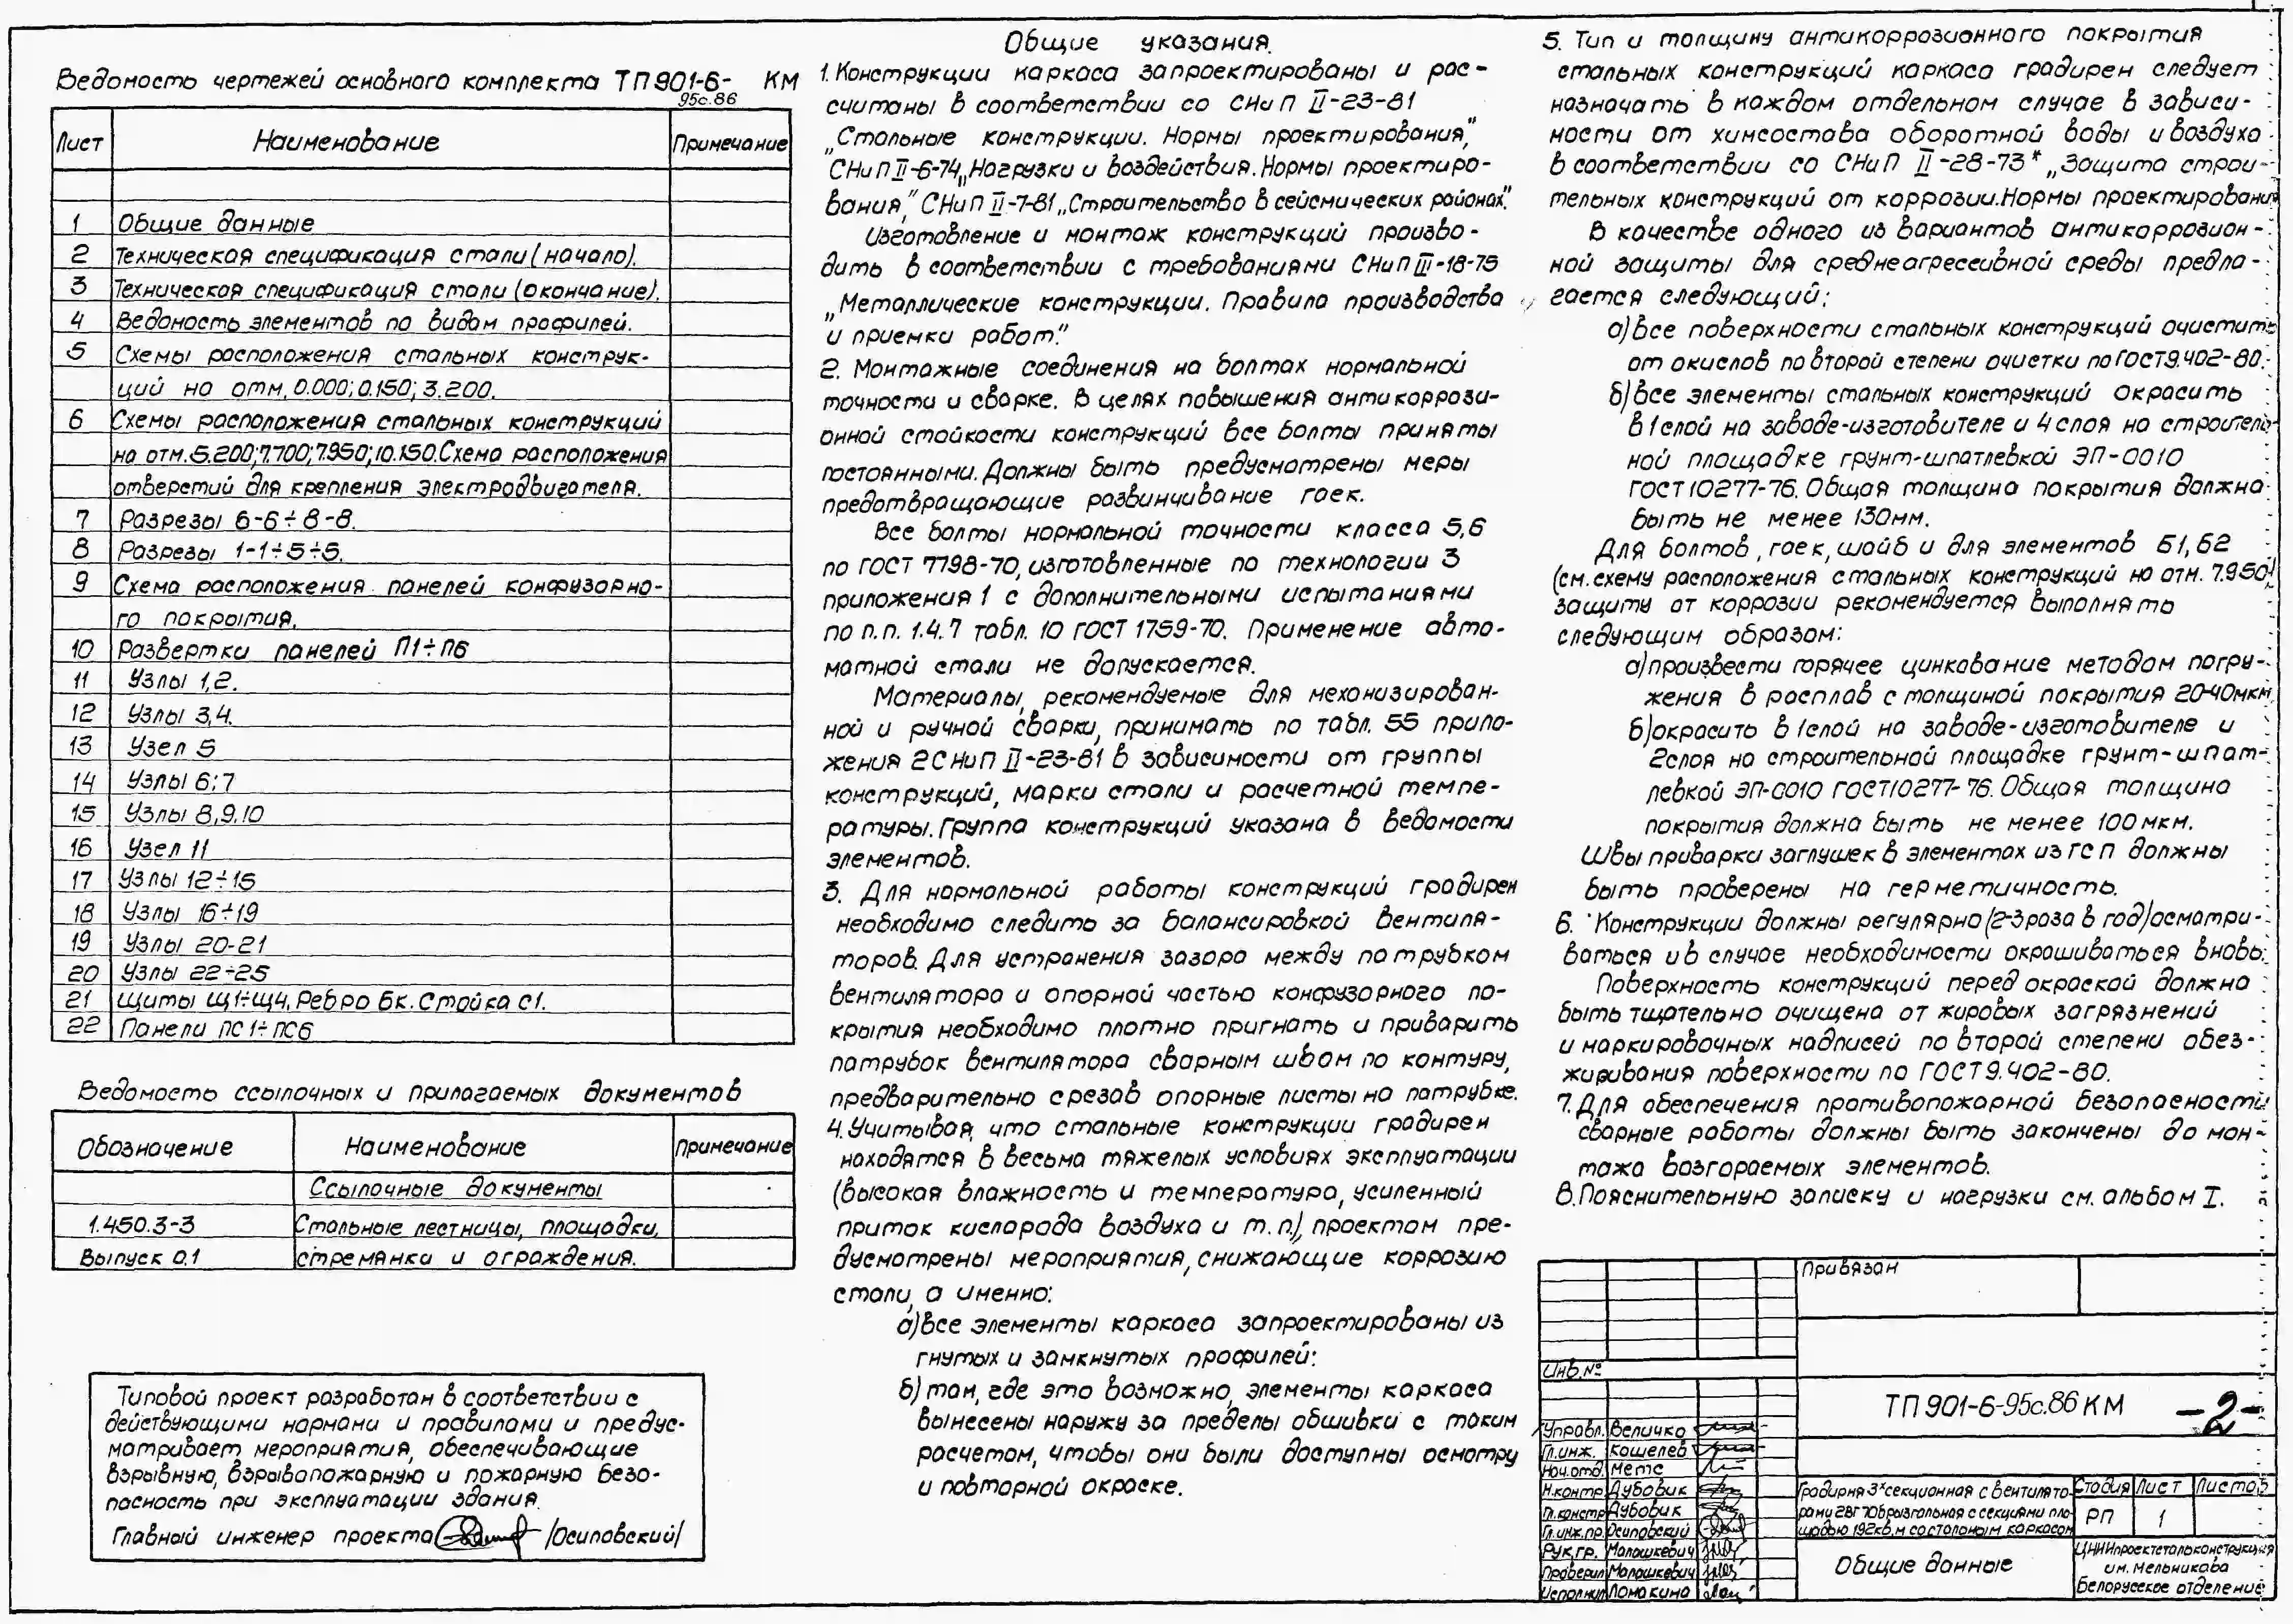 Ведомость чертежей основного комплекта ТП 901-6- КМ
95с.86
Лист Наименование Примечание
1 Общие данные
2 Техническая спецификация стали (начало).
3 Техническая спецификация стали (окончание).
4 Ведомость элементов по видам профилей.
5 Схемы расположения стальных конструк-
ций на отм. 0.000; 0.150; 3.200.
6 Схемы расположения стальных конструкций
на отм. 5.200; 7.700; 7.950; 10.150. Схема расположения
отверстий для крепления электродвигателя.
7 Разрезы 6-6÷8-8.
8 Разрезы 1-1÷5÷5.
9 Схема расположения панелей конфузорно-
го покрытия.
10 Развертки панелей П1÷П6
11 Узлы 1,2.
12 Узлы 3,4.
13 Узел 5
14 Узлы 6; 7
15 Узлы 8,9,10
16 Узел 11
17 Узлы 12÷15
18 Узлы 16÷19
19 Узлы 20-21
20 Узлы 22÷25
21 Щиты Щ1÷Щ4. Ребро Бк. Стойка С1.
22 Панели ПС1÷ПС6
Ведомость ссылочных и прилагаемых документов
Обозначение Наименование Примечание
Ссылочные документы
1.450.3-3 Стальные лестницы, площадки,
Выпуск 0.1 стремянки и ограждения.
Типовой проект разработан в соответствии с
действующими нормами и правилами и предус-
матривает мероприятия, обеспечивающие
взрывную, взрывопожарную и пожарную безо-
пасность при эксплуатации здания.
Главный инженер проекта /Осиповский/
Общие указания.
1. Конструкции каркаса запроектированы и рас-
считаны в соответствии со СНиП II-23-81
„Стальные конструкции. Нормы проектирования",
СНиП II-6-74 „Нагрузки и воздействия. Нормы проектиро-
вания", СНиП II-7-81 „Строительство в сейсмических районах".
Изготовление и монтаж конструкций произво-
дить в соответствии с требованиями СНиП III-18-75
„Металлические конструкции. Правила производства
и приемки работ."
2. Монтажные соединения на болтах нормальной
точности и сварке. В целях повышения антикоррози-
онной стойкости конструкций все болты приняты
постоянными. Должны быть предусмотрены меры
предотвращающие развинчивание гаек.
Все болты нормальной точности класса 5,6
по ГОСТ 7798-70, изготовленные по технологии 3
приложения 1 с дополнительными испытаниями
по п.п. 1.4.7 табл. 10 ГОСТ 1759-70. Применение авто-
матной стали не допускается.
Материалы, рекомендуемые для механизирован-
ной и ручной сварки, принимать по табл. 55 прило-
жения 2 СНиП II-23-81 в зависимости от группы
конструкций, марки стали и расчетной темпе-
ратуры. Группа конструкций указана в ведомости
элементов.
3. Для нормальной работы конструкций градирен
необходимо следить за балансировкой вентиля-
торов. Для устранения зазора между патрубком
вентилятора и опорной частью конфузорного по-
крытия необходимо плотно пригнать и приварить
патрубок вентилятора сварным швом по контуру,
предварительно срезав опорные листы на патрубке.
4. Учитывая, что стальные конструкции градирен
находятся в весьма тяжелых условиях эксплуатации
(высокая влажность и температура, усиленный
приток кислорода воздуха и т.п.), проектом пре-
дусмотрены мероприятия, снижающие коррозию
стали, а именно:
а) все элементы каркаса запроектированы из
гнутых и замкнутых профилей;
б) там, где это возможно, элементы каркаса
вынесены наружу за пределы обшивки с таким
расчетом, чтобы они были доступны осмотру
и повторной окраске.
5. Тип и толщину антикоррозионного покрытия
стальных конструкций каркаса градирен следует
назначать в каждом отдельном случае в зависи-
мости от химсостава оборотной воды и воздуха
в соответствии со СНиП II-28-73* „Защита строи-
тельных конструкций от коррозии. Нормы проектирования
В качестве одного из вариантов антикоррозион-
ной защиты для среднеагрессивной среды предла-
гается следующий:
а) все поверхности стальных конструкций очистить
от окислов по второй степени очистки по ГОСТ 9.402-80.
б) все элементы стальных конструкций окрасить
в 1 слой на заводе-изготовителе и 4 слоя на строитель-
ной площадке грунт-шпатлевкой ЭП-0010
ГОСТ 10277-76. Общая толщина покрытия должна
быть не менее 130мм.
Для болтов, гаек, шайб и для элементов Б1, Б2
(см. схему расположения стальных конструкций на отм. 7.950)
защиту от коррозии рекомендуется выполнять
следующим образом:
а) произвести горячее цинкование методом погру-
жения в расплав с толщиной покрытия 20-40мкм
б) окрасить в 1 слой на заводе-изготовителе и
2 слоя на строительной площадке грунт-шпат-
левкой ЭП-0010 ГОСТ 10277-76. Общая толщина
покрытия должна быть не менее 100 мкм.
Швы приварки заглушек в элементах из ГСП должны
быть проверены на герметичность.
6. Конструкции должны регулярно (2-3 раза в год) осматри-
ваться и в случае необходимости окрашиваться вновь.
Поверхность конструкций перед окраской должна
быть тщательно очищена от жировых загрязнений
и маркировочных надписей по второй степени обез-
жиривания поверхности по ГОСТ 9.402-80.
7. Для обеспечения противопожарной безопасности
сварные работы должны быть закончены до мон-
тажа возгораемых элементов.
8. Пояснительную записку и нагрузки см. альбом I.
Привязан
Инв.№
ТП 901-6-95с.86 КМ -2-
Управл. Величко
Гл.инж. Кошелев
Нач.отд. Метс
Н.контр Дубовик
Гл.констр Дубовик
Гл.инж.пр. Осиповский
Рук.гр. Малашкевич
Проверил Малашкевич
Исполнил Ломакина
Градирня 3х секционная с вентилято-
рами 2ВГ 70 брызгальная с секциями пло-
щадью 192кв.м со стальным каркасом
Стадия Лист Листов
РП 1
Общие данные
ЦНИИпроектстальконструкция
им. Мельникова
Белорусское отделение